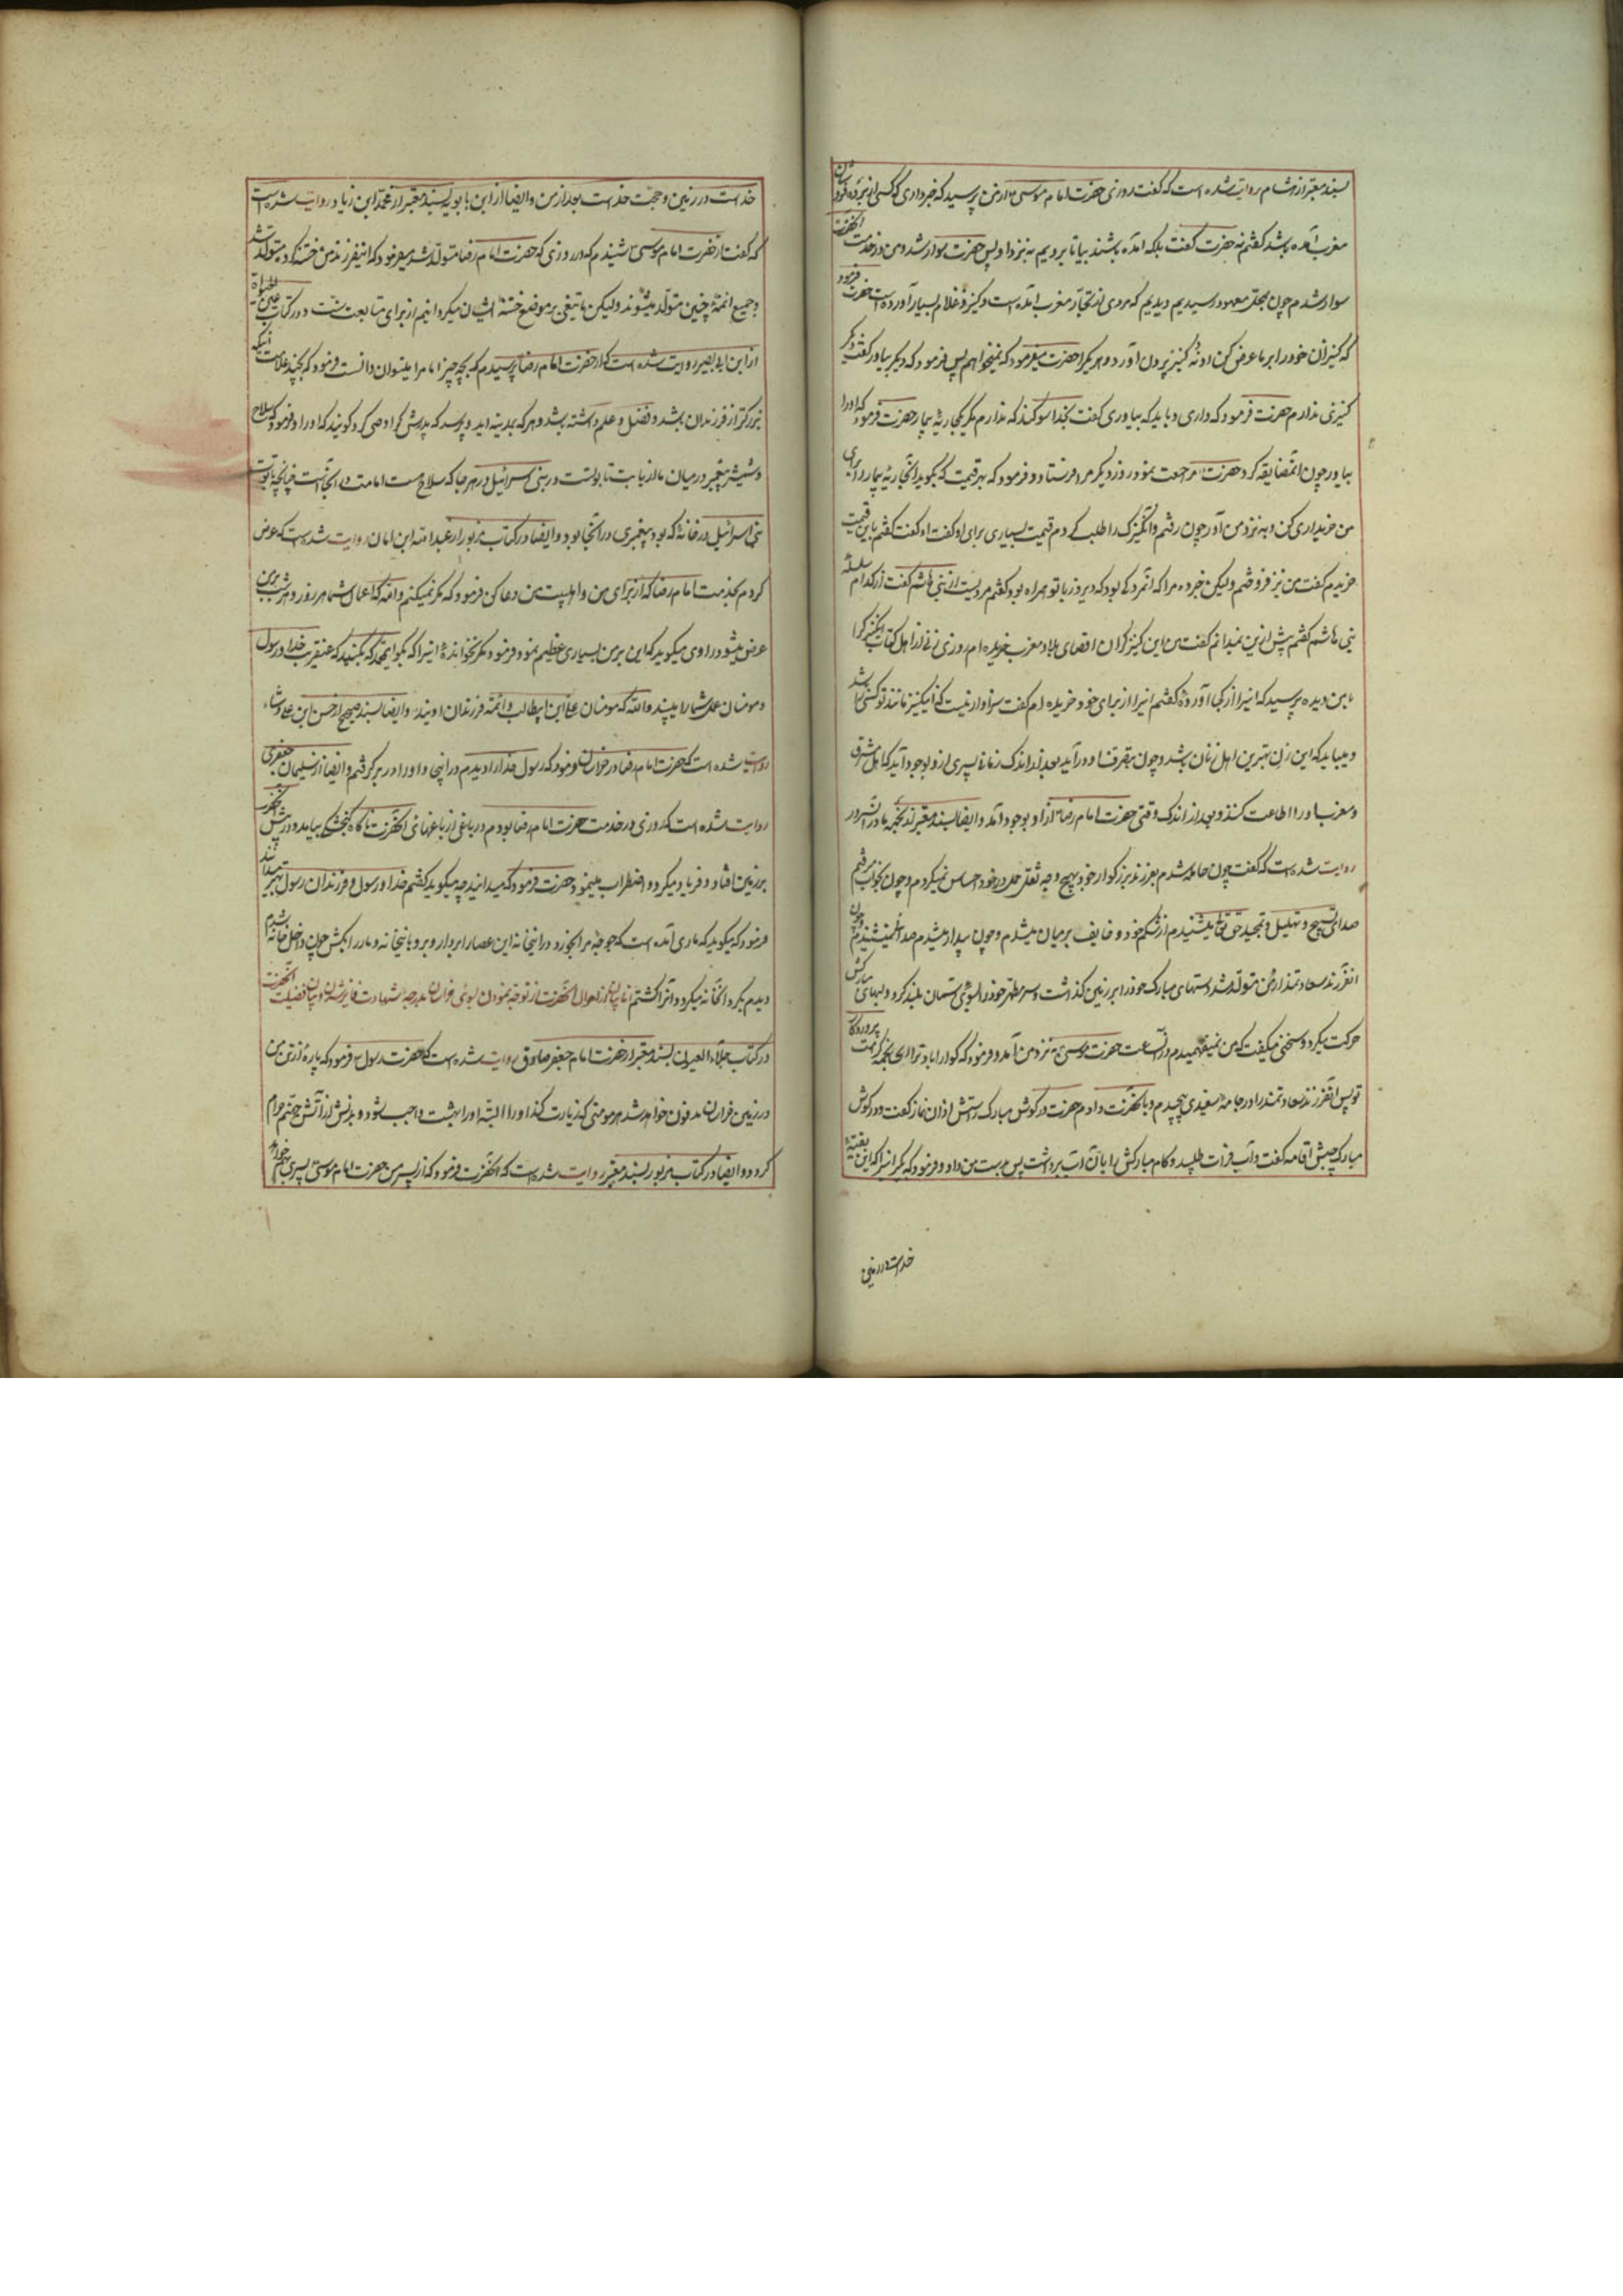 بسند معتبر از هشام روایت شده است که گفت روزی حضرت امام موسی از من پرسید که خبر داری که کسی از برده فروشان
مغرب آمده باشد گفتم نه حضرت گفت بلکه آمده باشند بیا تا برویم به نزد او پس حضرت سوار شد و من در خدمت آنحضرت
سوار شدم چون بمحل معهود رسیدیم دیدیم که مردی از تجار مغرب آمده است و کنیز و غلام بسیار آورده است حضرت فرمود
که کنیزان خود را بر ما عرض کن او نه کنیز بیرون آورد و هر یک را حضرت میفرمود که نمیخواهم پس فرمود که دیگر بیاور گفت دیگر
کنیزی ندارم حضرت فرمود که داری و باید که بیاوری گفت بخدا سوگند که ندارم مگر یک جاریه بیمار حضرت فرمود که او را
بیاور چون او مضایقه کرد حضرت مراجعت نمود و روز دیگر مرا فرستاد و فرمود که بهر قیمت که بگوید آن جاریه بیمار را برای
من خریداری کن و به نزد من آور چون رفتم و آن کنیزک را طلب کردم قیمت بسیاری برای او گفت او گفت گفتم باین قیمت
خریدم گفت من نیز فروختم ولیکن خبر ده مرا که آنمرد که بود که دیروز با تو همراه بود گفتم مردیست از بنی هاشم گفت از کدام سلسله
بنی هاشم گفتم پیش ازین نمیدانم گفت من این کنیزک را از اقصای بلاد مغرب خریده ام روزی زنی از اهل کتاب این کنیز را
با من دیده پرسید که اینرا از کجا آورده گفتم اینرا از برای خود خریده ام گفت سزاوار نیست که این کنیز مانند تو کسی باشد
و میباید که این زن بهترین اهل زمان باشد و چون بتصرف او درآید بعد از اندک زمانی پسری ازو بوجود آید که اهل مشرق
و مغرب او را اطاعت کنند و بعد از اندک وقتی حضرت امام رضا از او بوجود آمد و ایضا بسند معتبر از نجمه مادر آنسرور
روایت شده است که گفت چون حامله شدم بفرزند بزرگوار خود بهیچ وجه ثقل حمل در خود احساس نمیکردم و چون بخواب میرفتم
صدای تسبیح و تهلیل و تمجید حق تعالی میشنیدم از شکم خود و خایف بر میان میشدم و چون بیدار میشدم صدا نمیشنیدم و چون
آنفرزند سعادتمند از من متولد شد دستهای مبارک خود را بر زمین گذاشت و سر مطهر خود را بسوی آسمان بلند کرد و لبهای مبارکش
حرکت میکرد و سخنی میگفت که من نمیفهمیدم در آنساعت حضرت موسی به نزد من آمد و فرمود که گوارا باد ترا ای نجمه کرامت پروردگار
تو پس آنفرزند سعادتمند را در جامه سفیدی پیچیدم و بآنحضرت دادم حضرت در گوش مبارک راستش اذان نماز گفت و در گوش
مبارک چپش اقامه گفت و آب فرات طلبید و کام مبارکش را بآن آب برداشت پس بدست من داد و فرمود که بگیر اینرا که این بقیه
خداست در زمین
خداست در زمین و حجت خداست بعد از من و ایضا از ابن بابویه بسند معتبر از محمد ابن زیاد روایت شده است
که گفت از حضرت امام موسی شنیدم که در روزی که حضرت امام رضا متولد شد میفرمود که این فرزند من ختنه کرده متولد شد
و جمیع ائمه چنین متولد میشوند ولیکن ما تیغی بر موضع ختنه ایشان میگردانیم از برای متابعت سنت و در کتاب
از ابن ابی بصیر روایت شده است که از حضرت امام رضا پرسیدم که بچه چیز امام را میتوان دانست فرمود که بچند علامت اینکه
بزرگتر از فرزندان باشد و فضل و علم داشته باشد و هر که بمدینه آید و پرسد که پدرش کرا وصی کرد گویند که او را و فرمود که سلاح
و شمشیر پیغمبر در میان ما از بابت تابوتست در بنی اسرائیل در هر جا که سلاح هست امامت در آنجاست چنانچه تابوت
بنی اسرائیل در خانه که بود پیغمبری در آنجا بود و ایضا در کتاب مزبور از عبدالله ابن ابان روایت شده است که عرض
کردم بخدمت امام رضا که از برای من و اهلبیت من دعا کن فرمود که مگر نمیکنم والله که اعمال شما هر روز و هر شب بر من
عرض میشود راوی میگوید که این بر من بسیار عظیم نمود فرمود مگر نخوانده اینرا که بگو ای محمد که بکنید که عنقریب خدا و رسول
و مومنان عمل شما را میبیند والله که مومنان علی ابن ابیطالب و ائمه فرزندان اویند و ایضا بسند صحیح از حسن ابن علی وشاء
روایت شده است که حضرت امام رضا در خراسان فرمود که رسول خدا را دیدم در اینجا و او را در بر گرفتم و ایضا از سلیمان جعفری
روایت شده است که روزی در خدمت حضرت امام رضا بودم در باغی از باغهای آنحضرت ناگاه گنجشکی بیامد و در پیش آنحضرت
بر زمین افتاد و فریاد میکرد و اضطراب مینمود حضرت فرمود که میدانید چه میگوید گفتم خدا و رسول و فرزندان رسول بهتر میدانند
فرمود که میگوید که ماری آمده است که جوجه مرا بخورد در اینخانه این عصا را بردار و برو باینخانه و مار را بکش چون داخل خانه شدم
دیدم مار بگرد آنخانه میگردد و آنرا کشتم اما بیان از احوال آنحضرت از توجه نمودن بسوی خراسان بدرجه شهادت فایز شدن و بیان فضیلت آنحضرت
در کتاب جلاء العیون بسند معتبر از حضرت امام جعفر صادق روایت شده است که حضرت رسول فرمود که پاره از تن من
در زمین خراسان مدفون خواهد شد هر مومنی که زیارت کند او را البته او را بهشت واجب شود و بدنش از آتش جهنم حرام
گردد و ایضا در کتاب مزبور بسند معتبر روایت شده است که آنحضرت فرمود که از پسر من حضرت امام موسی پسری بهم خواهد